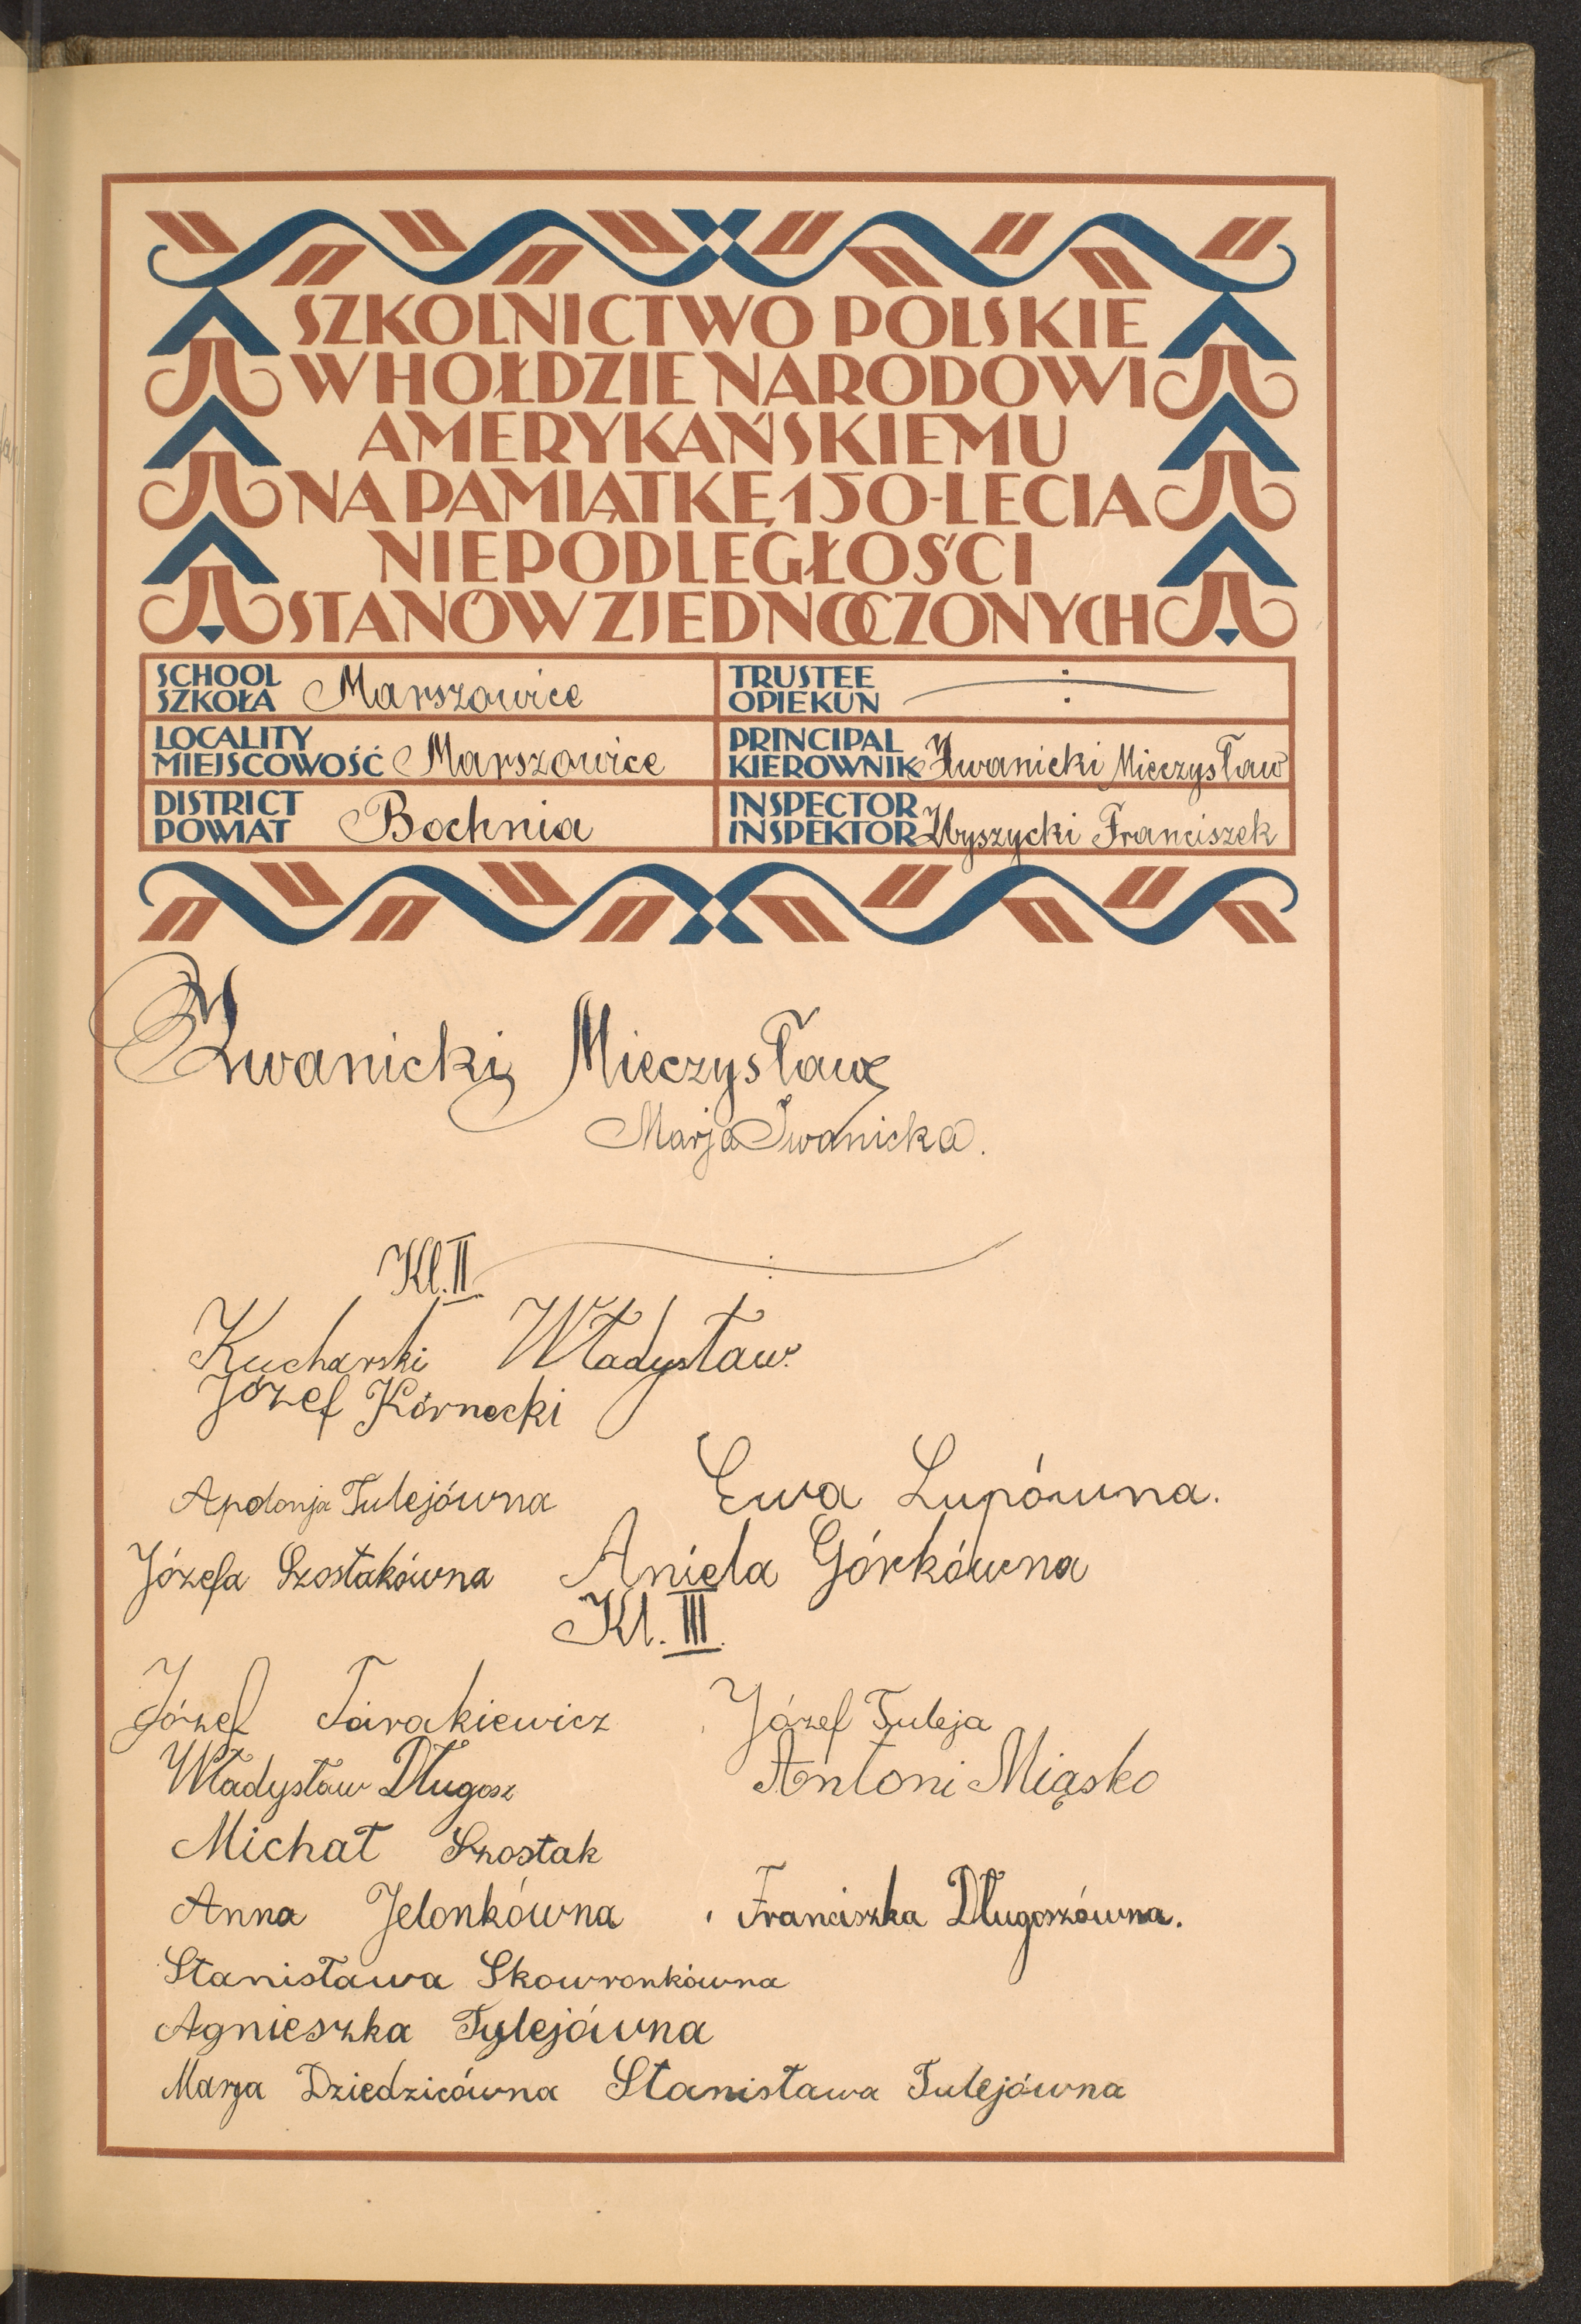 SZKOLNICTWO POLSKIE
W HOŁDZIE NARODOWI
AMERYKAŃSKIEMU
NA PAMIĄTKĘ 150-LECIA
NIEPODLEGŁOŚCI
STANÓW ZJEDNOCZONYCH
SCHOOL
SZKOŁA Marszowice
TRUSTEE
OPIEKUN
LOCALITY
MIEJSCOWOŚĆ Marszowice
PRINCIPAL
KIEROWNIK Iwanicki Mieczysław
DISTRICT
POWIAT Bochnia
INSPECTOR
INSPEKTOR Wyszycki Franciszek
Iwanicki Mieczysław
Marja Iwanicka.
Kl. II
Kucharski Władysław.
Józef Kórnecki
Apolonja Tulejówna Ewa Lupówna.
Józefa Szostakówna Aniela Górkówna
Kl. III.
Józef Tarakiewicz Józef Tuleja
Władysław Długosz Antoni Miąsko
Michał Szostak
Anna Jelonkówna Franciszka Długoszówna.
Stanisława Skowronkówna
Agnieszka Tylejówna
Marja Dziedzicówna Stanisława Tulejówna